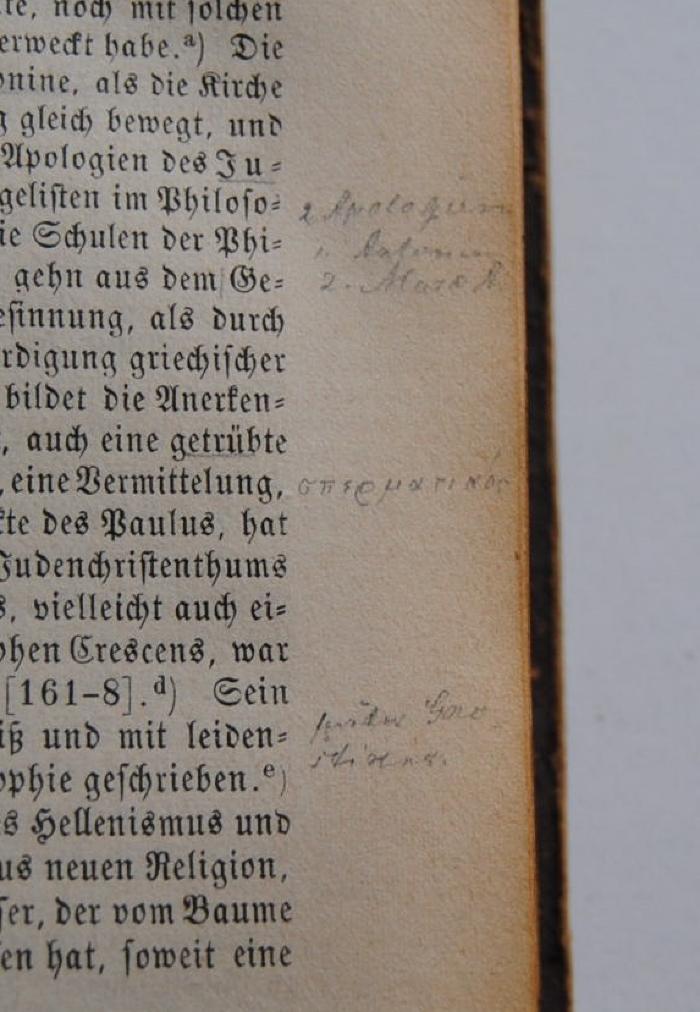 noch mit solchen
erweckt habe.ᵃ) Die
als die Kirche
gleich bewegt, und
Apologien des Ju⸗
gelisten im Philoso⸗
2 Apologien
ie Schulen der Phi⸗
1. Antonin
gehn aus dem Ge⸗
2. Marc A.
esinnung, als durch
rdigung griechischer
bildet die Anerken⸗
, auch eine getrübte
, eine Vermittelung,
σπερματικός
kte des Paulus, hat
Judenchristenthums
s, vielleicht auch ei⸗
ophen Crescens, war
[161–8].ᵈ) Sein
iß und mit leiden⸗
später Gno-
sticher.
ophie geschrieben.ᵉ)
s Hellenismus und
us neuen Religion,
ser, der vom Baume
en hat, soweit eine